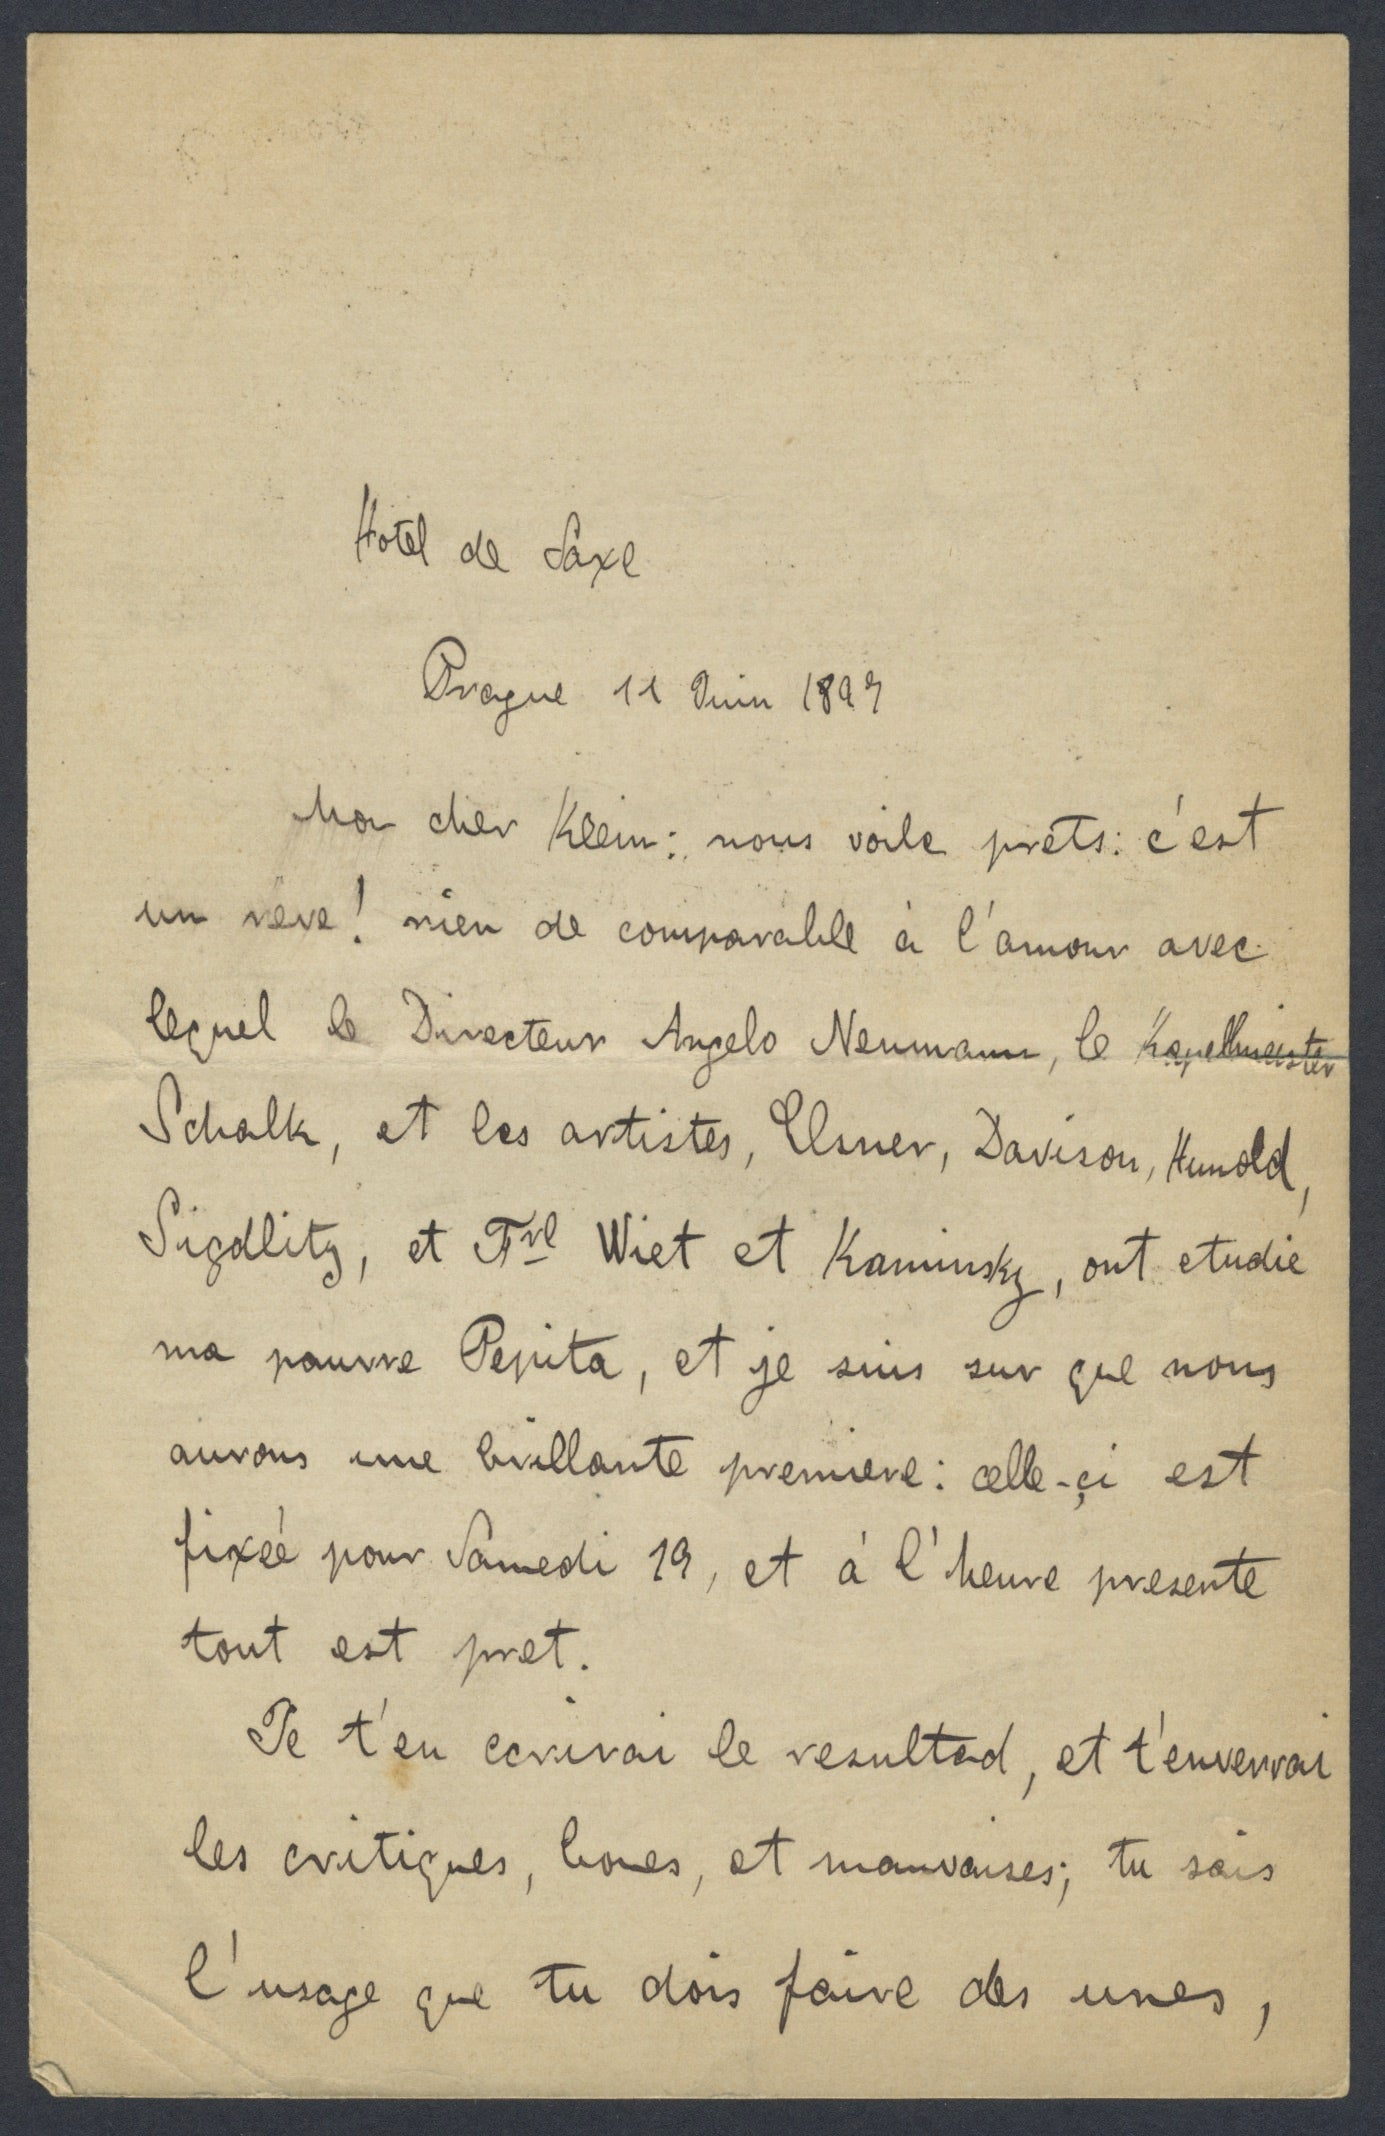 Hotel de Saxe
Prague 11 Juin 1897
Mon cher Klein: nous voila prets: c'est
un reve! rien de comparable à l'amour avec
lequel le Directeur Angelo Neumann, le Kapellmeister
Schalk, et les artistes, Elsner, Davison, Hunold,
Sigdlitz, et Frl Wiet et Kaminsky, ont etudié
ma pauvre Pepita, et je suis sur que nous
aurons une brillante premiere: celle-çi est
fixeé pour Samedi 19, et à l'heure presente
tout est pret.
Je t'en ecrirai le resultad, et t'enverrai
les critiques, bones, et mauvaises; tu sais
l'usage que tu dois faire des unes,